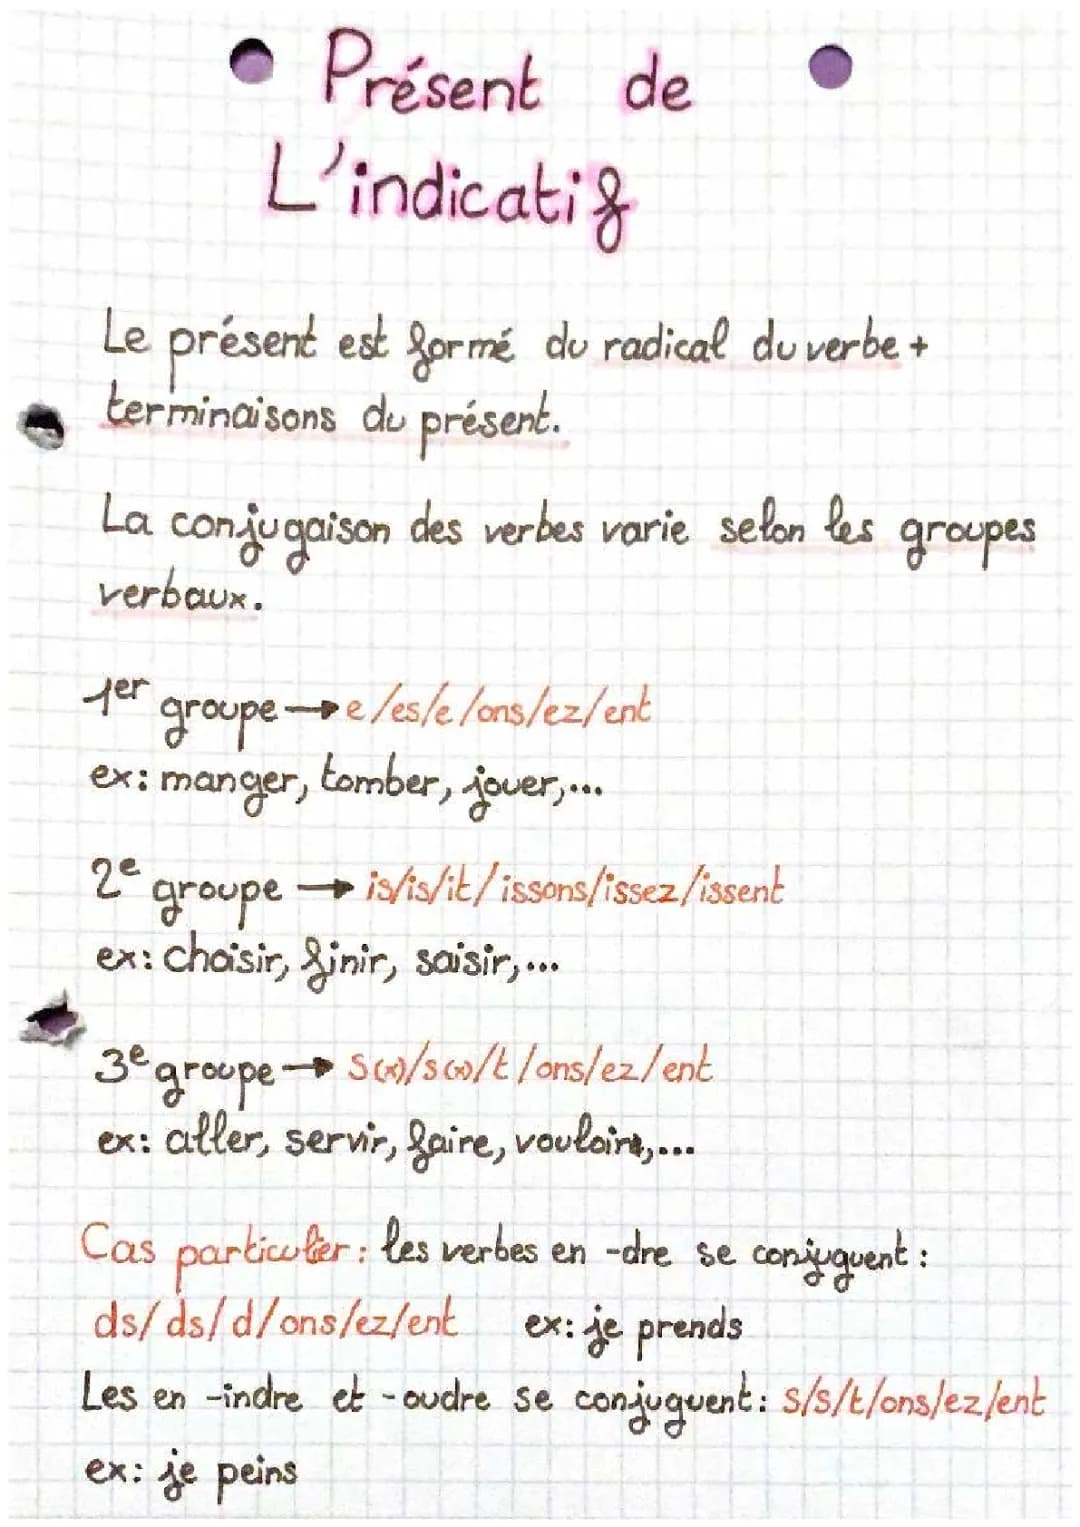 Présent de
L'indicatif
Le présent est formé du radical du verbe +
terminaisons du présent.
La conjugaison des verbes varie selon les groupes
verbaux.
1er groupe → e/es/e/ons/ez/ent
ex: manger, tomber, jouer,...
2e groupe → is/is/it/issons/issez/issent
ex: choisir, finir, saisir,...
3e groupe → s(x)/s(x)/t/ons/ez/ent
ex: aller, servir, faire, vouloir,...
Cas particulier: les verbes en -dre se conjuguent :
ds/ds/d/ons/ez/ent ex: je prends
Les en -indre et -oudre se conjuguent: s/s/t/ons/ez/ent
ex: je peins